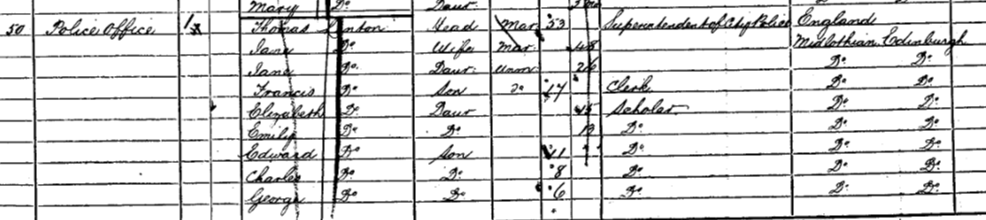 Mary Do Daur
50 Police Office 1 Thomas Linton Head Mar 53 Superintendent of City Police England
Jane Do Wife Mar 48 Midlothian Edinburgh
Jane Do Daur Unm Do Do
Francis Do Son Do 17 Clerk Do Do
Elizabeth Do Daur Scholar Do Do
Emily Do Do Do Do Do
Edward Do Son 11 Do Do Do
Charles Do Do 8 Do Do Do
George Do Do 6 Do Do Do